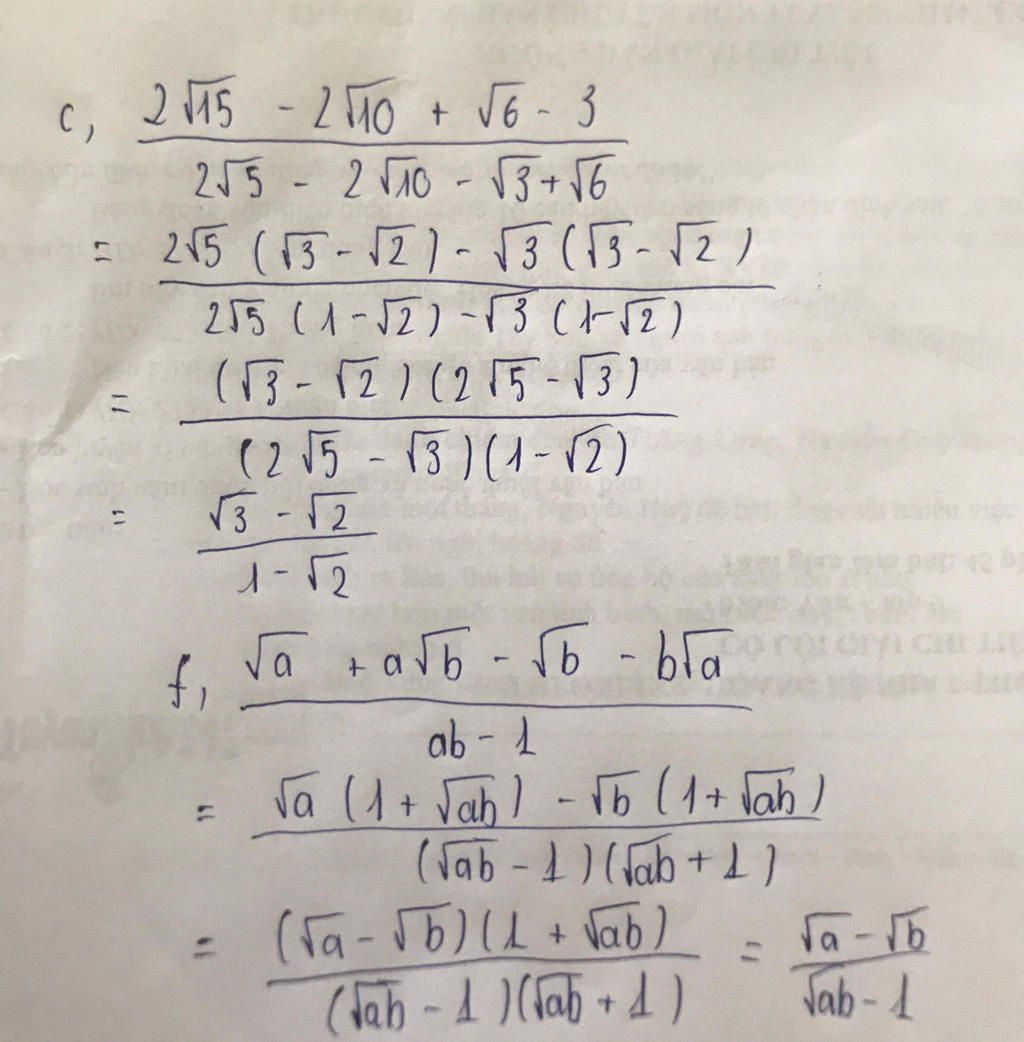 c, (2√15 - 2√10 + √6 - 3) / (2√5 - 2√10 - √3 + √6)
= (2√5 (√3 - √2) - √3 (√3 - √2)) / (2√5 (1 - √2) - √3 (1 - √2))
= ((√3 - √2)(2√5 - √3)) / ((2√5 - √3)(1 - √2))
= (√3 - √2) / (1 - √2)
f, (√a + a√b - √b - b√a) / (ab - 1)
= (√a (1 + √ab) - √b (1 + √ab)) / ((√ab - 1)(√ab + 1))
= ((√a - √b)(1 + √ab)) / ((√ab - 1)(√ab + 1)) = (√a - √b) / (√ab - 1)